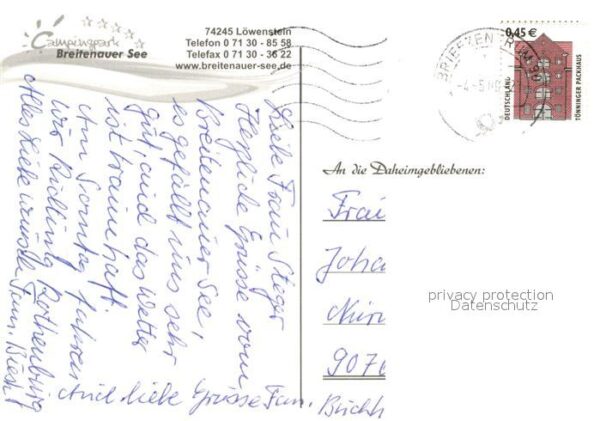 Campingpark
Breitenauer See
74245 Löwenstein
Telefon 0 71 30 - 85 58
Telefax 0 71 30 - 36 22
www.breitenauer-see.de
Liebe Frau Steger
Herzliche Grüsse vom
Breitenauer See,
es gefällt uns sehr
gut, und das Wetter
ist traumhaft
Am Sonntag fahren
wir Richtung Rothenburg
Alles Liebe wünscht Fam.
Auch liebe Grüsse Fam.
BRIEFZENTRUM
0,45 €
DEUTSCHLAND
TÖNNINGER PACKHAUS
An die Daheimgebliebenen:
Frau
Joha
Nürn
privacy protection
Datenschutz